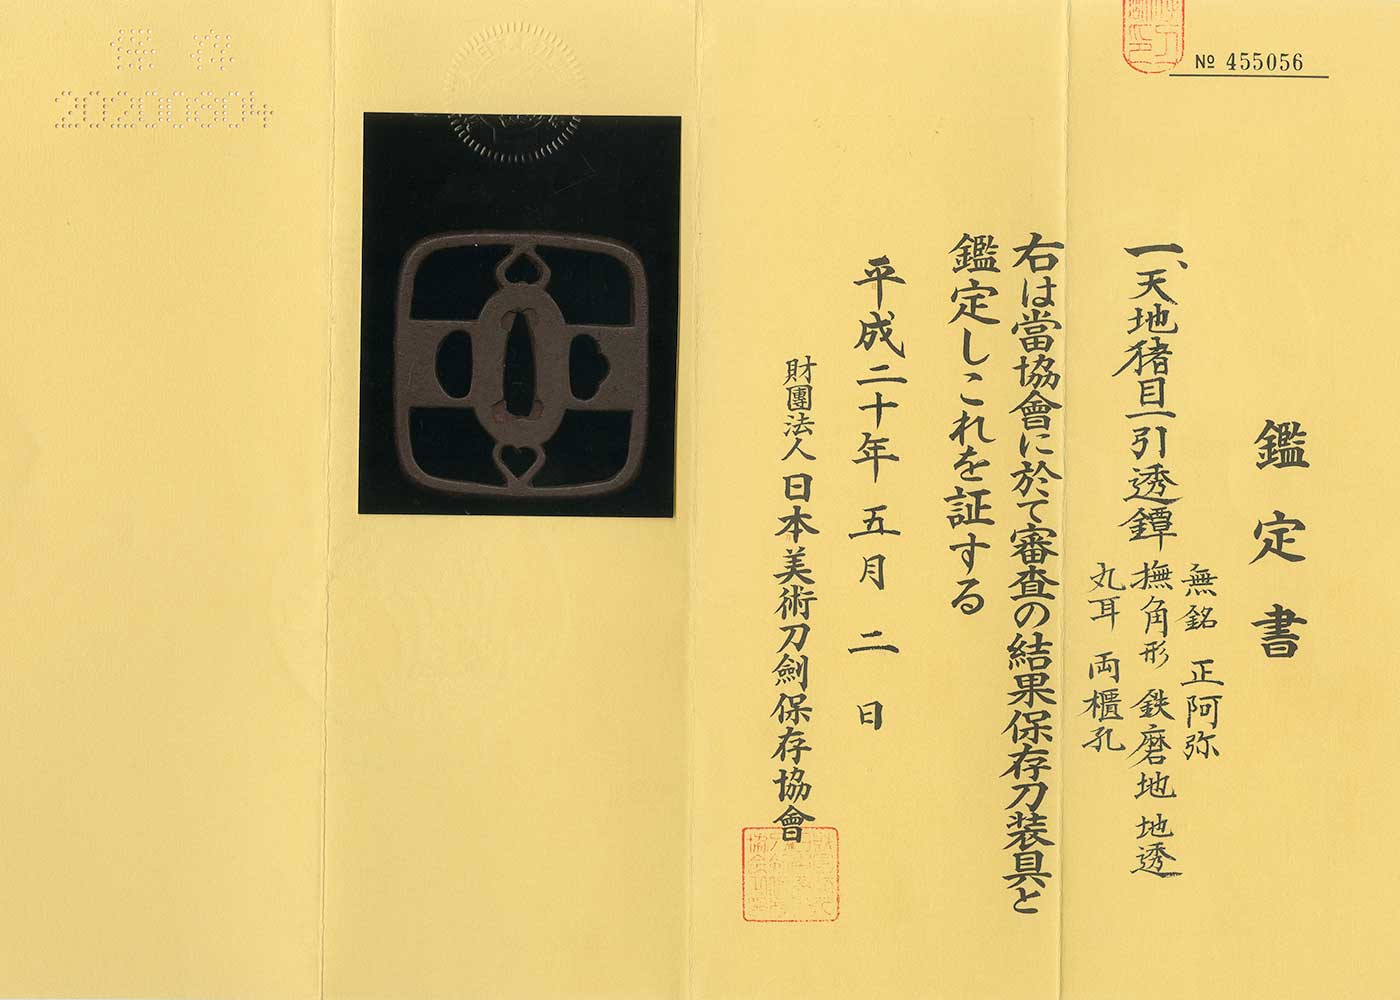 № 455056
鑑定書
一、天地猪目一引透鐔
無銘 正阿弥
撫角形 鉄磨地 地透
丸耳 両櫃孔
右は當協會に於て審査の結果保存刀装具と
鑑定しこれを証する
平成二十年五月二日
財團法人日本美術刀劍保存協會
保存
20200804